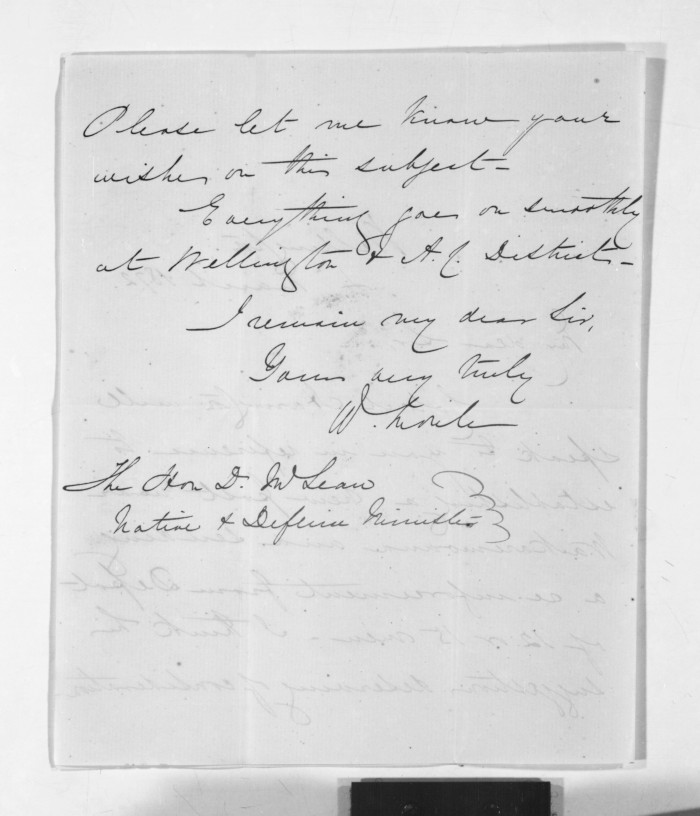 Please let me know your
wishes on this subject –
Everything goes on smoothly
at Wellington & A.C. District –
I remain my dear Sir,
Yours very truly
W.
The Hon D. McLean
Native & Defence Minister